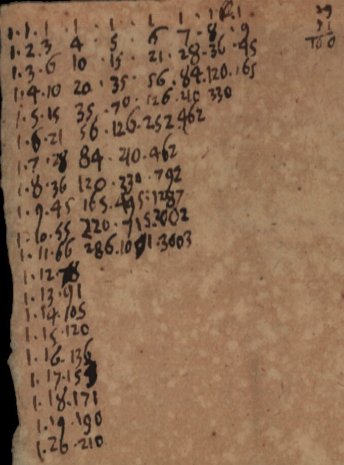 1. 1. 1 1 1 1 1 1 1
1. 2. 3 4 5 6 7. 8. 9
1. 3. 6 10 15. 21. 28. 36. 45
1. 4. 10 20. 35. 56. 84. 120. 165
1. 5. 15 35. 70. 126. 330
1. 6. 21 56. 126. 252. 462
1. 7. 28 84. 462
1. 8. 36 120. 330. 792
1. 9. 45 165. 495. 1287
1. 10. 55 220. 715.
1. 11. 66 286. 3003
1. 12. 78
1. 13. 91
1. 14. 105
1. 15. 120
1. 16. 136
1. 17. 153
1. 18. 171
1. 19. 190
1. 20. 210
29
100